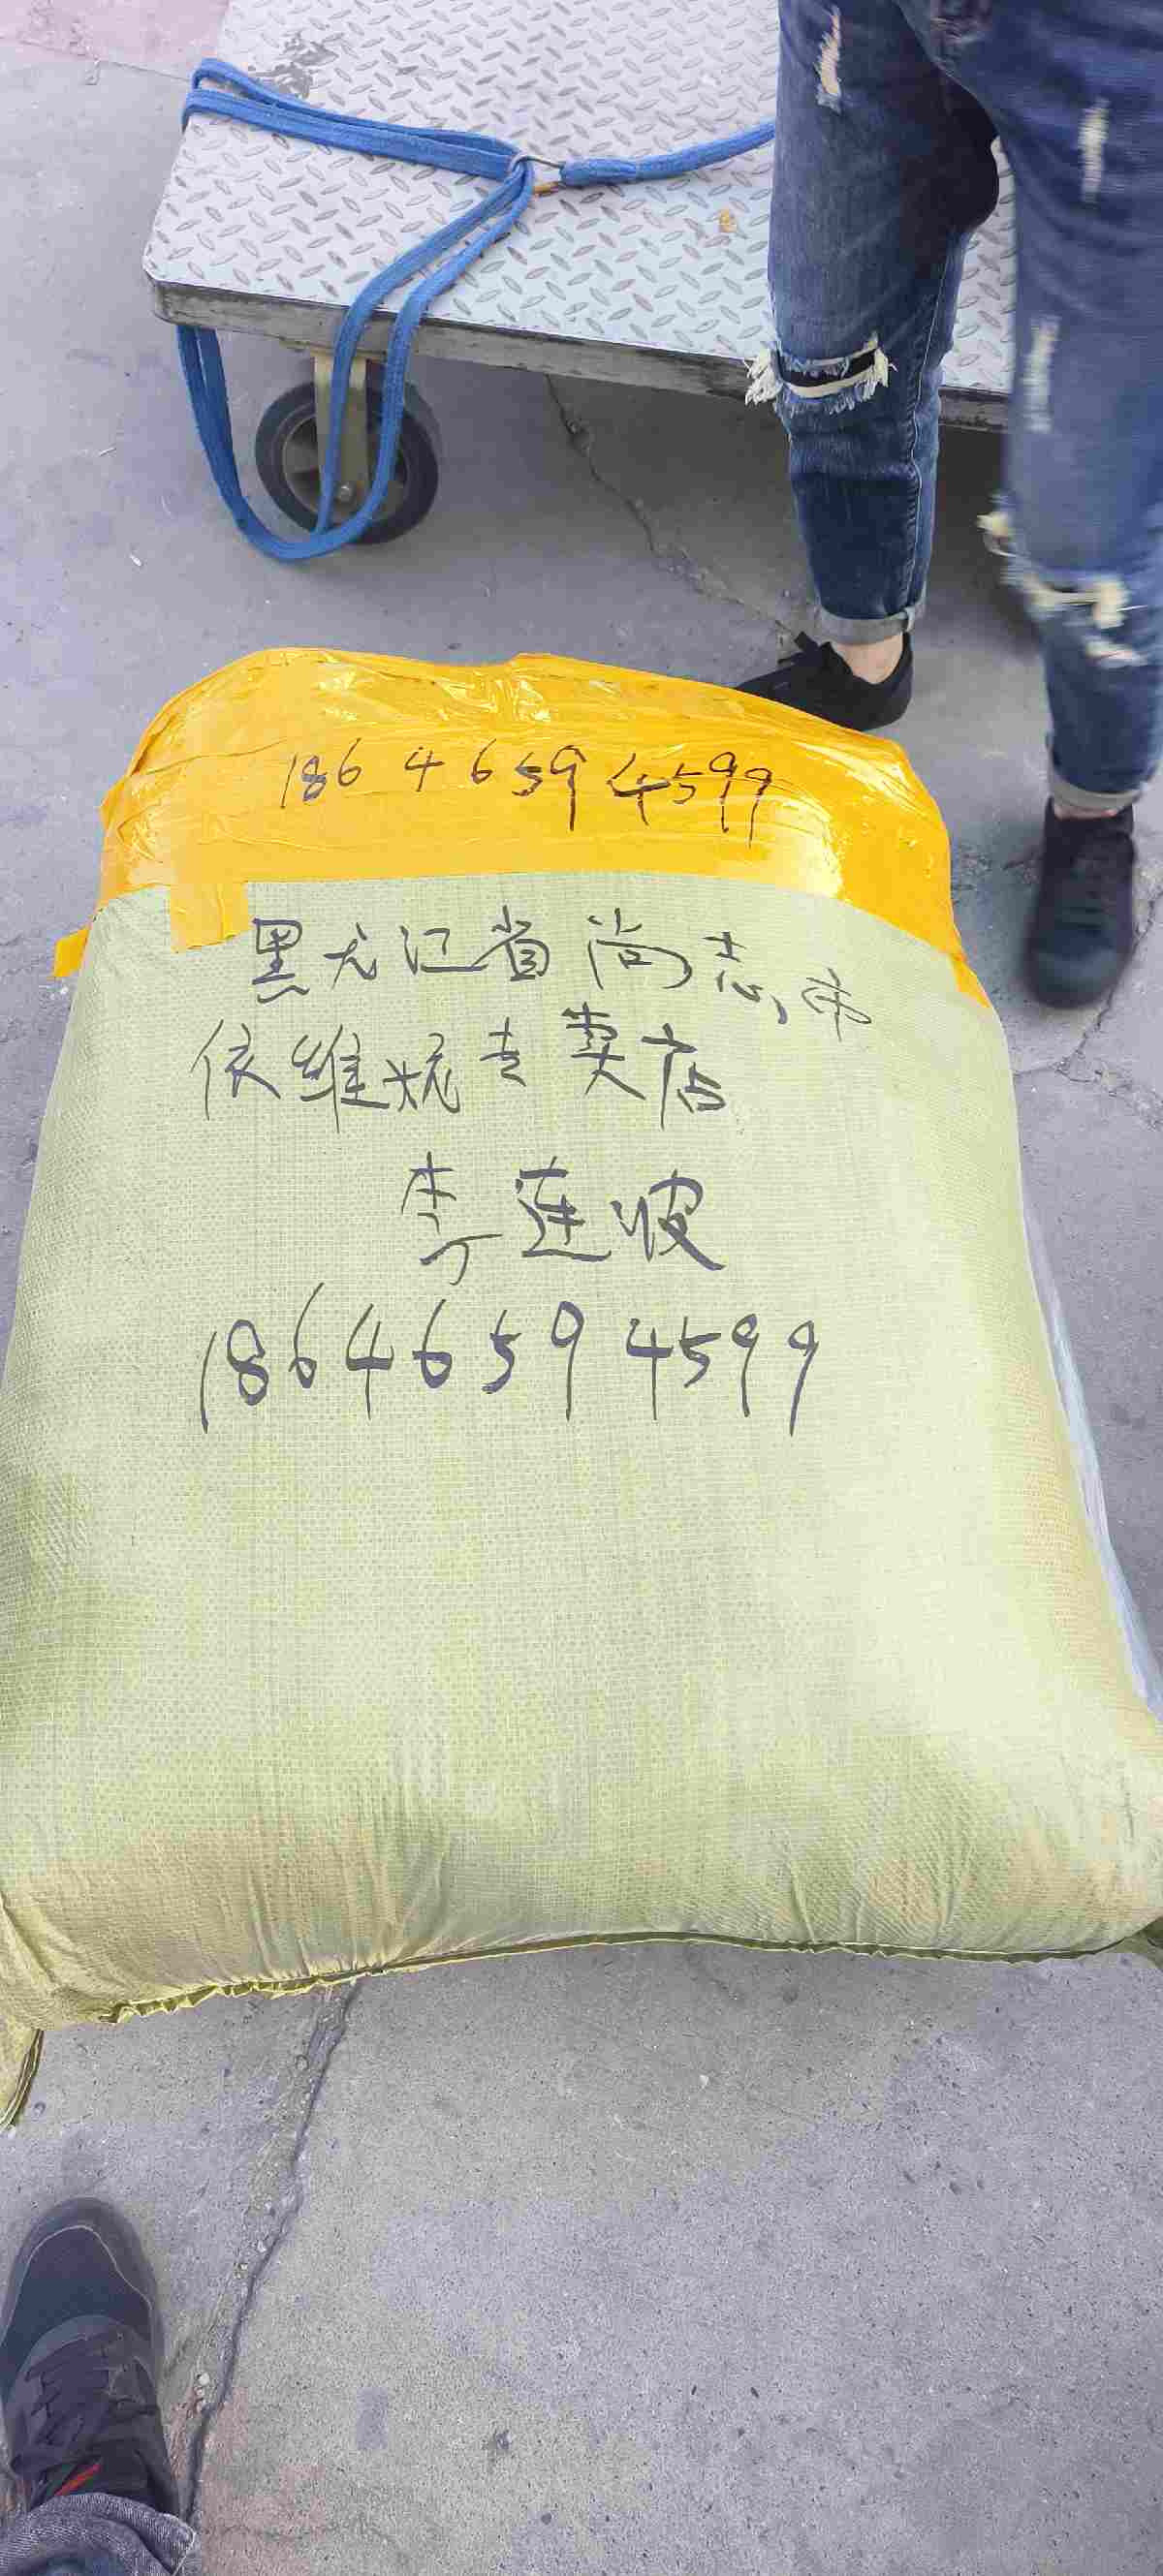 18646594599
黑龙江省尚志市
依维妮专卖店
李连波
18646594599